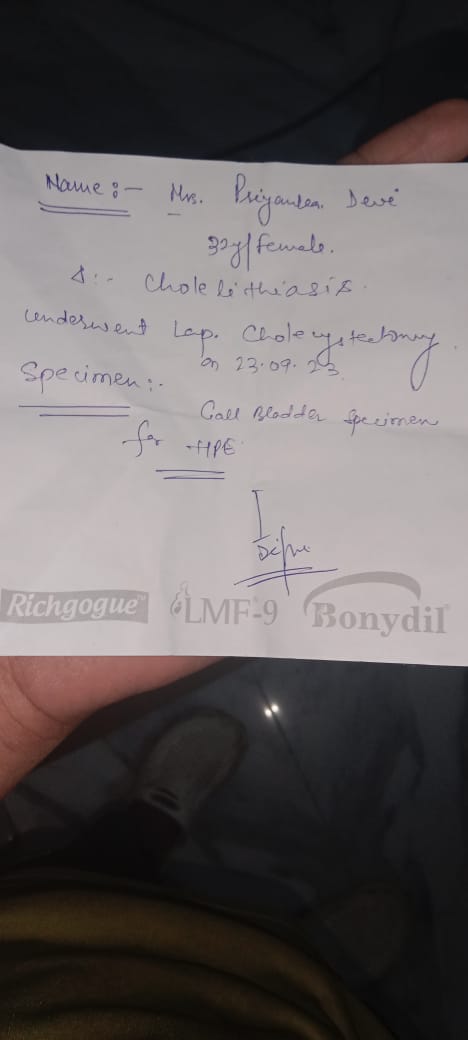 Name :- Mrs. Priyanka Devi
32y/female.
Cholelithiasis.
underwent Lap. Cholecystectomy
on 23.09.23
Specimen :-
Gall Bladder Specimen
for HPE
Richgogue LMF-9 Bonydil